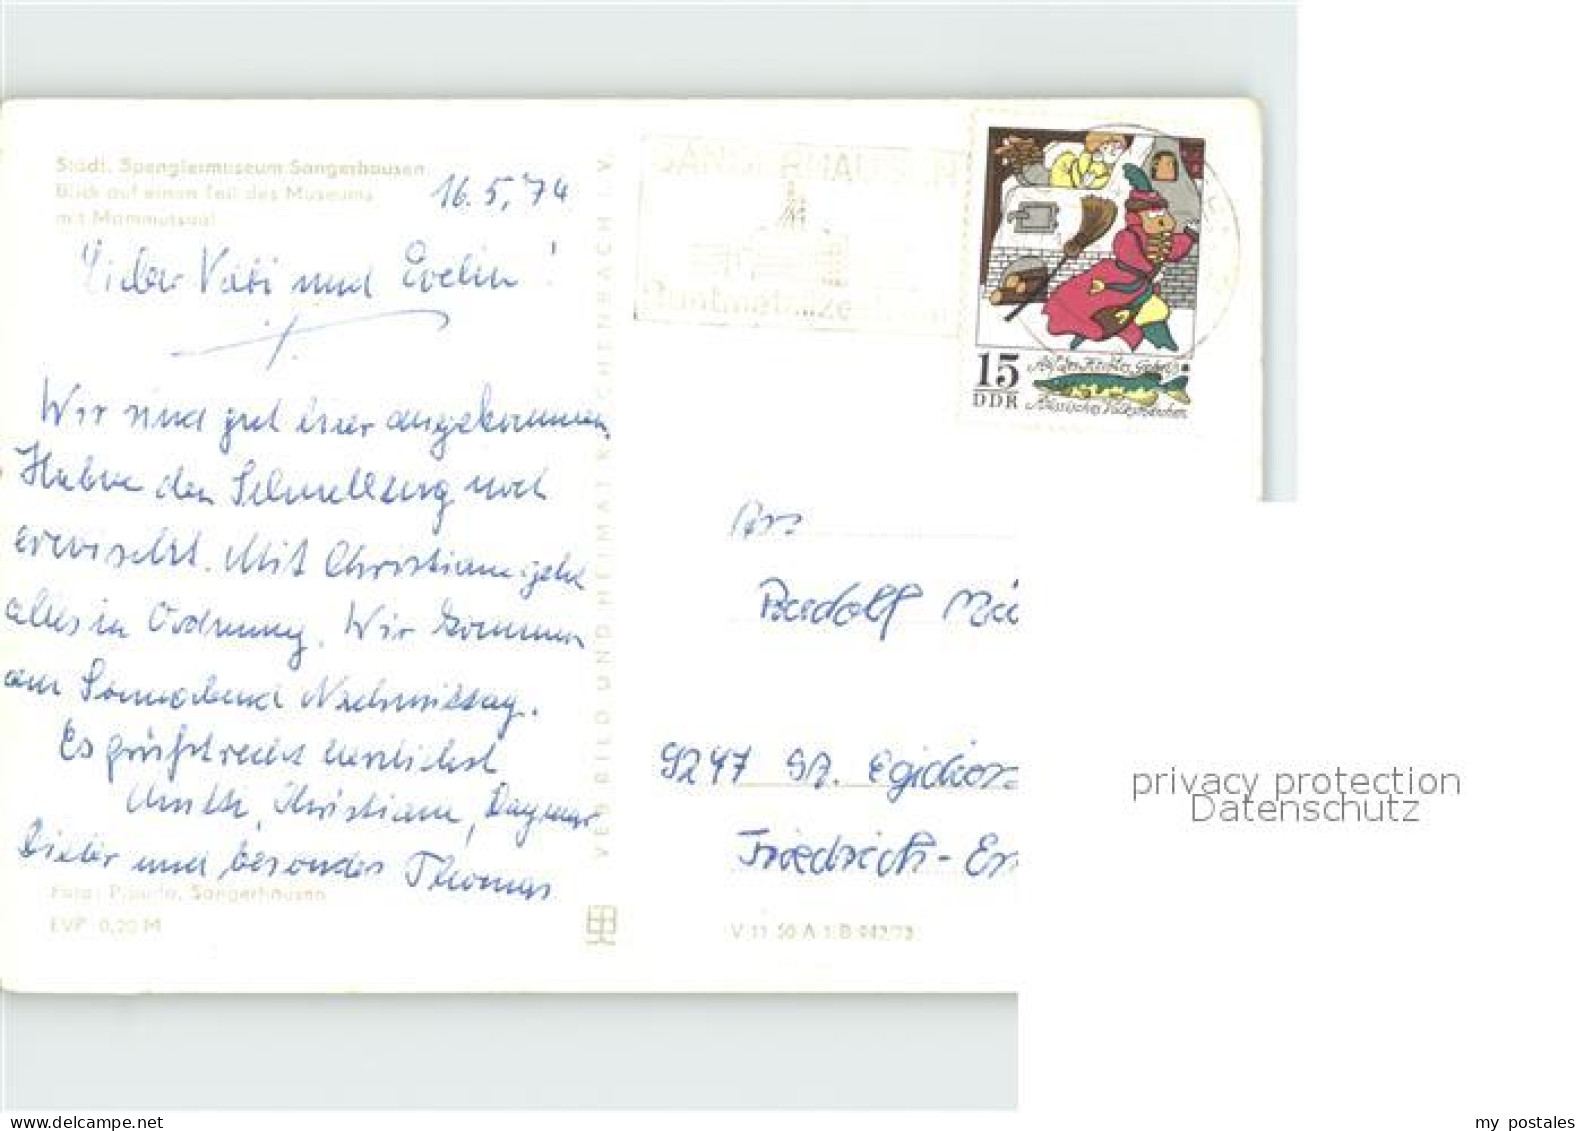 Städt. Spenglermuseum Sangerhausen
Blick auf einen Teil des Museums
mit Mammutsaal
16.5.74
Lieber Vati und Evelin!
Wir sind gut hier angekommen.
Haben den Schnellzug noch
erwischt. Mit Christiane geht
alles in Ordnung. Wir kommen
am Sonnabend Nachmittag.
Es grüßt recht herzlichst
Mutti, Christiane, Dagmar
Dieter und besonders Thomas
Foto: Piburla, Sangerhausen
EVP 0,20 M
VEB BILD UND HEIMAT REICHENBACH I. V.
SANGERHAUSEN
15
DDR
Auf des Hechtes Geheiß
Russisches Volksmärchen
Rudolf Mü
9247 St. Egidien
Friedrich-En
V 11 50 A 1 B 942/73
privacy protection
Datenschutz
my postales